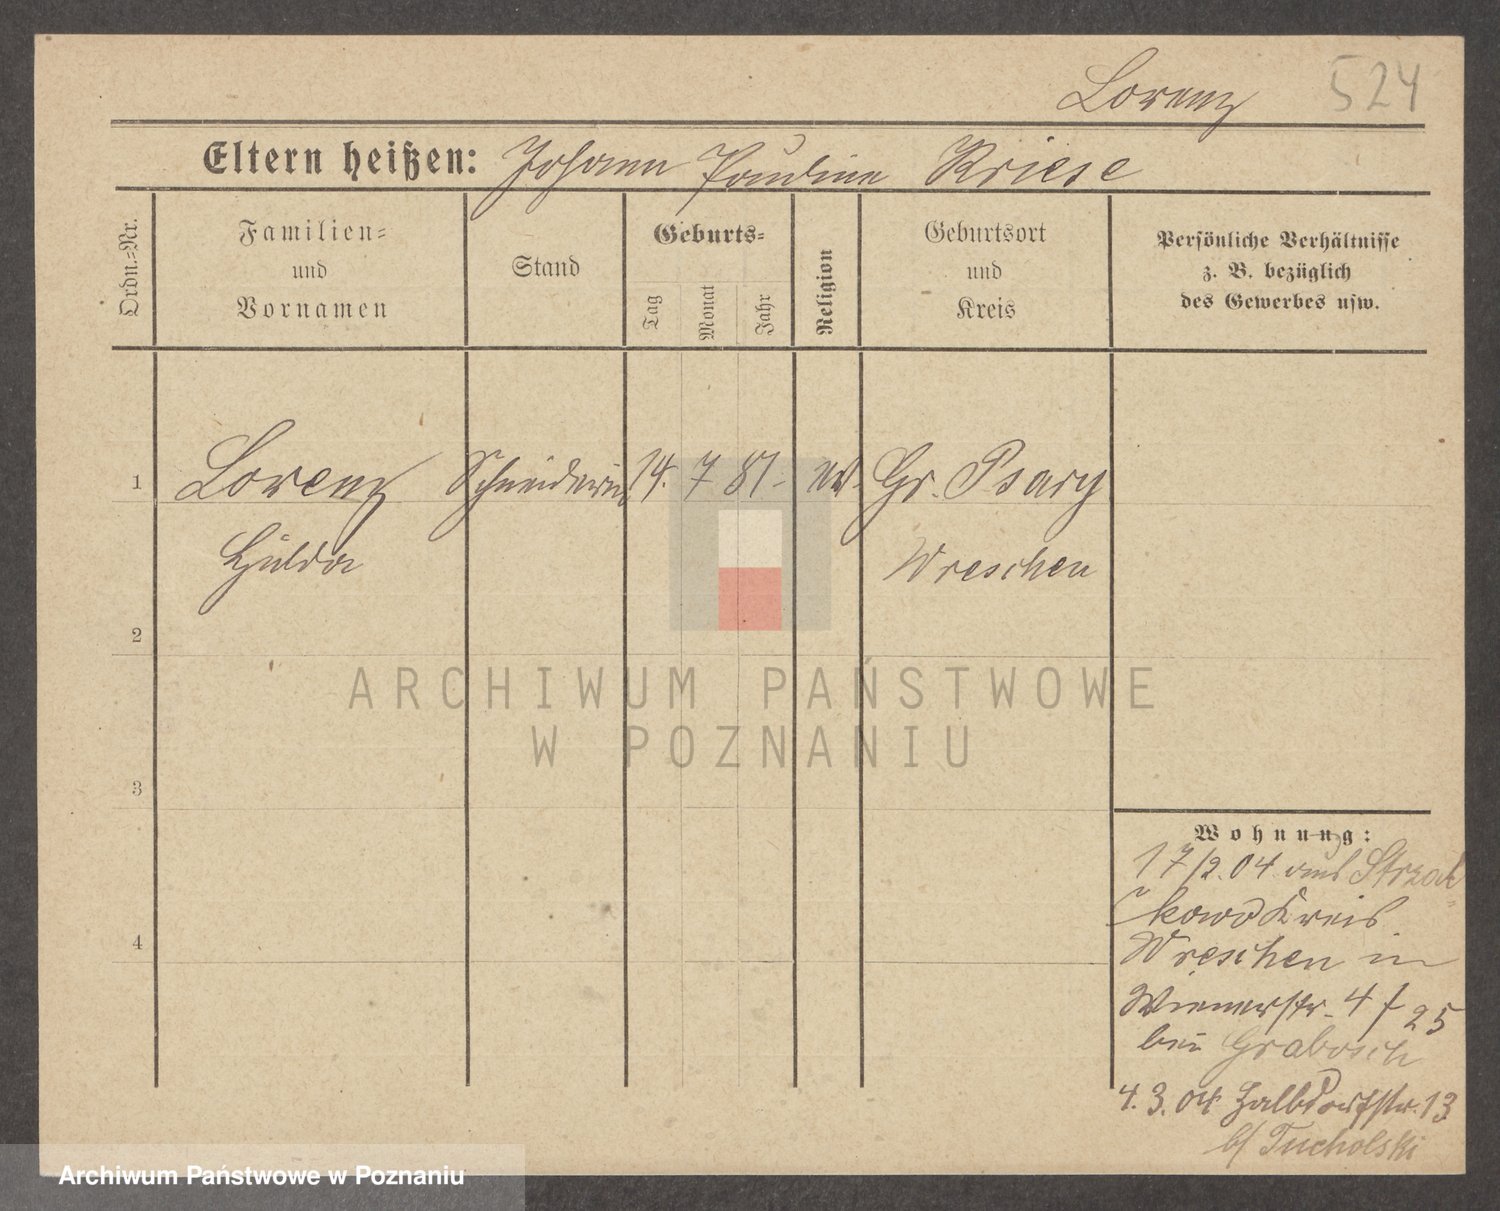 Lorenz 524
Eltern heißen: Johann Pauline Kriese
Ordn.=Nr.
Familien=
und
Vornamen
Stand
Geburts=
Tag
Monat
Jahr
Religion
Geburtsort
und
Kreis
Persönliche Verhältnisse
z. B. bezüglich
des Gewerbes usw.
1 Lorenz Schneiderin 14. 7 81. Gr. Psary
Hulda Wreschen
2
3
4
Wohnung:
17/2.04 aus Strzal
kowo Kreis
Wreschen in
Wienerstr. 4 f 25
bei Grabosch
4.3.04 Halbdorfstr. 13
b/ Tucholski
ARCHIWUM PAŃSTWOWE
W POZNANIU
Archiwum Państwowe w Poznaniu